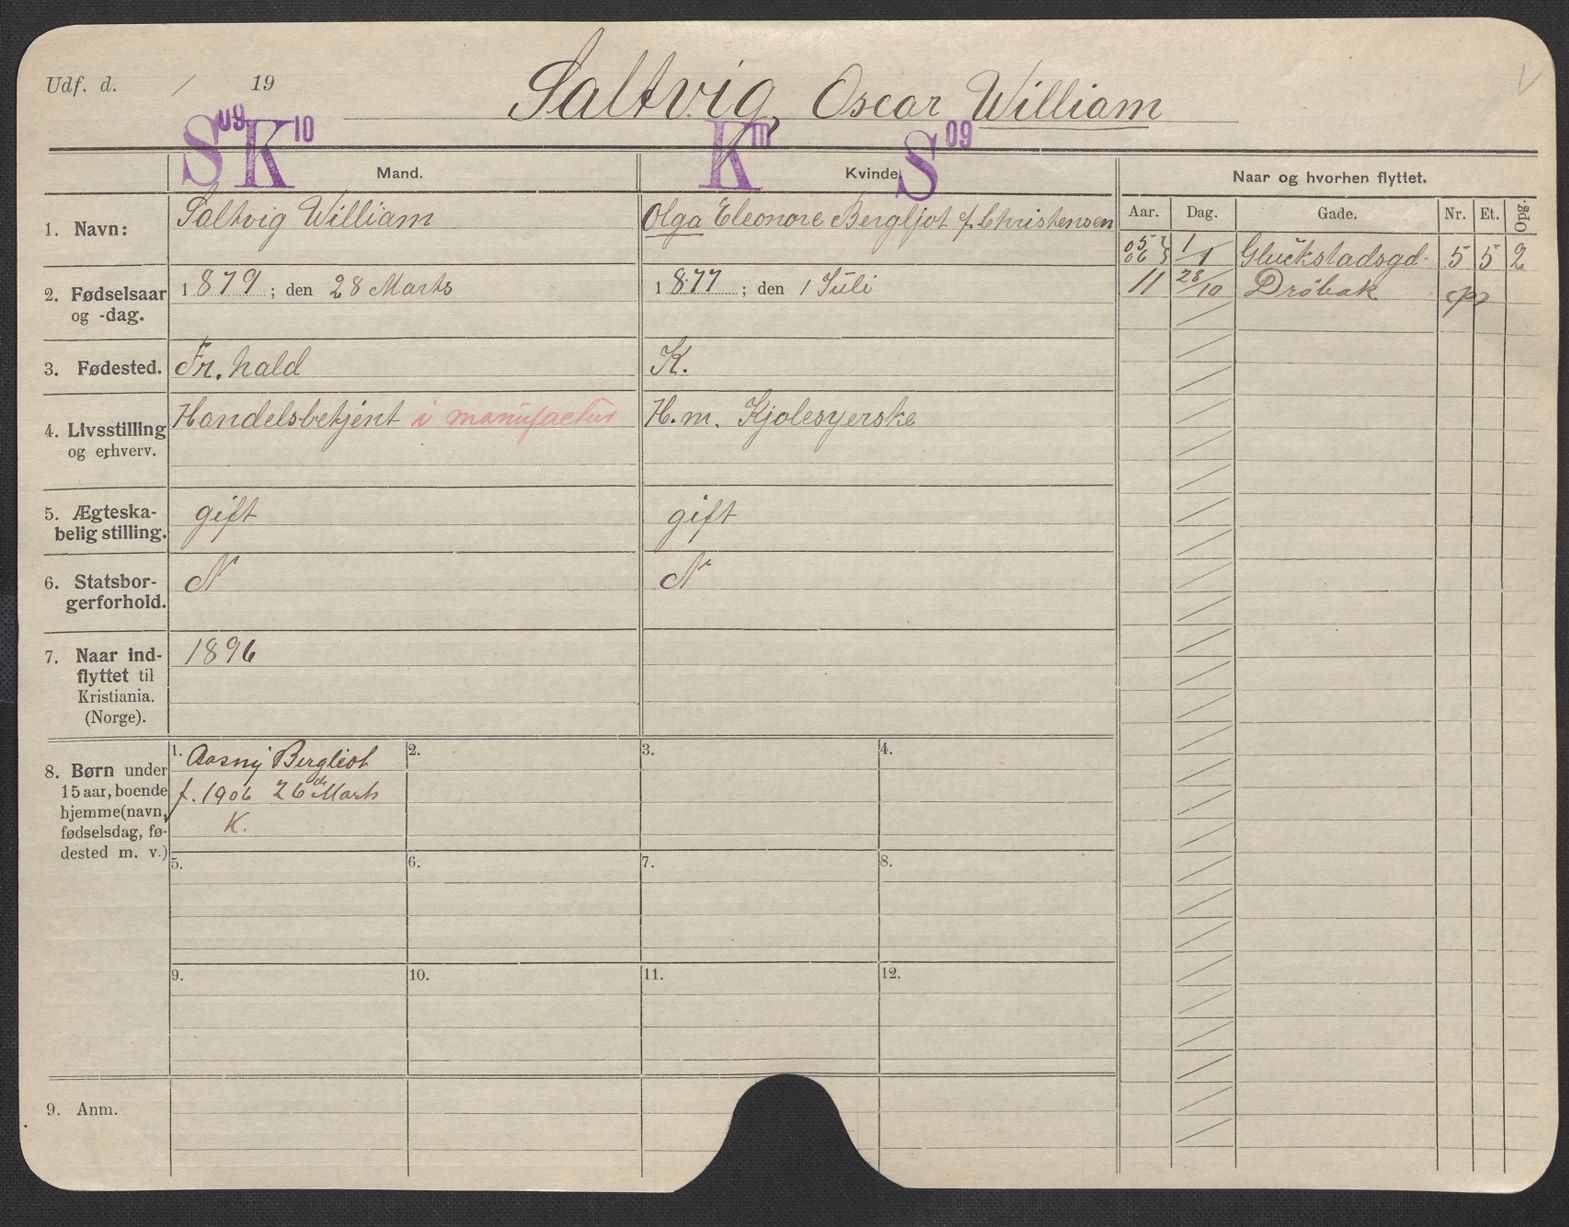 Udf. d. / 19
Saltvig, Oscar William
S 09 K 10 K m S 09
Mand. Kvinde. Naar og hvorhen flyttet.
Aar. Dag. Gade. Nr. Et. Opg.
1. Navn: Saltvig William Olga Eleonore Bergljot f. Christensen
05 06 1/1 Gluckstadsgd. 5 5 2
11 28/10 Drøbak
2. Fødselsaar og -dag. 1879; den 28 Marts 1877; den 1 Juli
3. Fødested. Fr.hald K.
4. Livsstilling og erhverv. Handelsbetjent i manufactur H.m. Kjolesyerske
5. Ægteska-
belig stilling. gift gift
6. Statsbor-
gerforhold. N N
7. Naar ind-
flyttet til
Kristiania.
(Norge). 1896
8. Børn under
15 aar, boende
hjemme (navn,
fødselsdag, fø-
dested m. v.)
1. Aasny Bergliot
f. 1906 26de Marts
K.
2. 3. 4.
5. 6. 7. 8.
9. 10. 11. 12.
9. Anm.